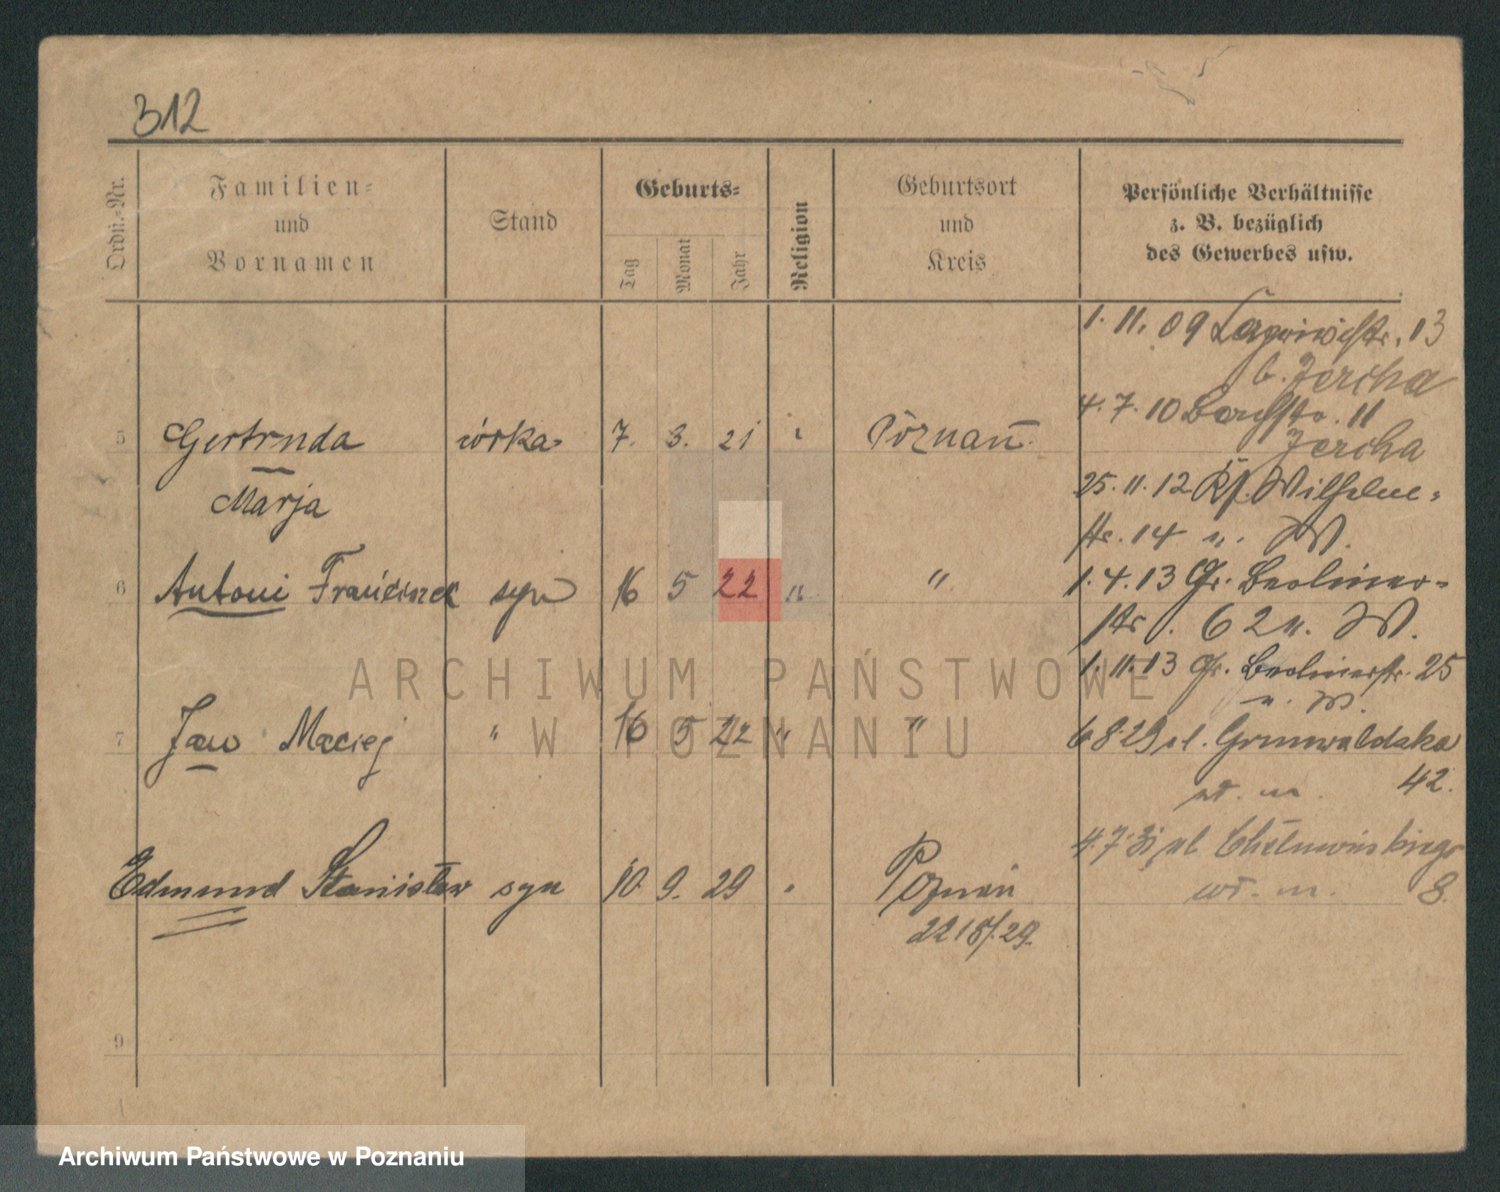 312
Ordn.-Nr.
Familien-
und
Vornamen
Stand
Geburts-
Tag
Monat
Jahr
Religion
Geburtsort
und
Kreis
Persönliche Verhältnisse
z. B. bezüglich
des Gewerbes usw.
1. 11. 09 13
b. Jercha
4. 7. 10 11
Jercha
5 Gertruda córka 7. 3. 21 Poznań.
Marja
25. 11. 12 Wilhelm-
str. 14 n. W.
6 Antoni Franciszek syn 16 5 22 " "
1. 4. 13 Gr. Berliner-
str. 62 n. W.
1. 11. 13 Gr. Berlinerstr. 25
n. W.
7 Jan Maciej " 16 5 22 " "
6 8 29 ul. Grunwaldska
42.
wł. m.
Edmund Stanisław syn 10. 9. 29 Poznań
2218/29.
4. 7. ul. 8.
wł. m.
9
ARCHIWUM PAŃSTWOWE
W POZNANIU
Archiwum Państwowe w Poznaniu